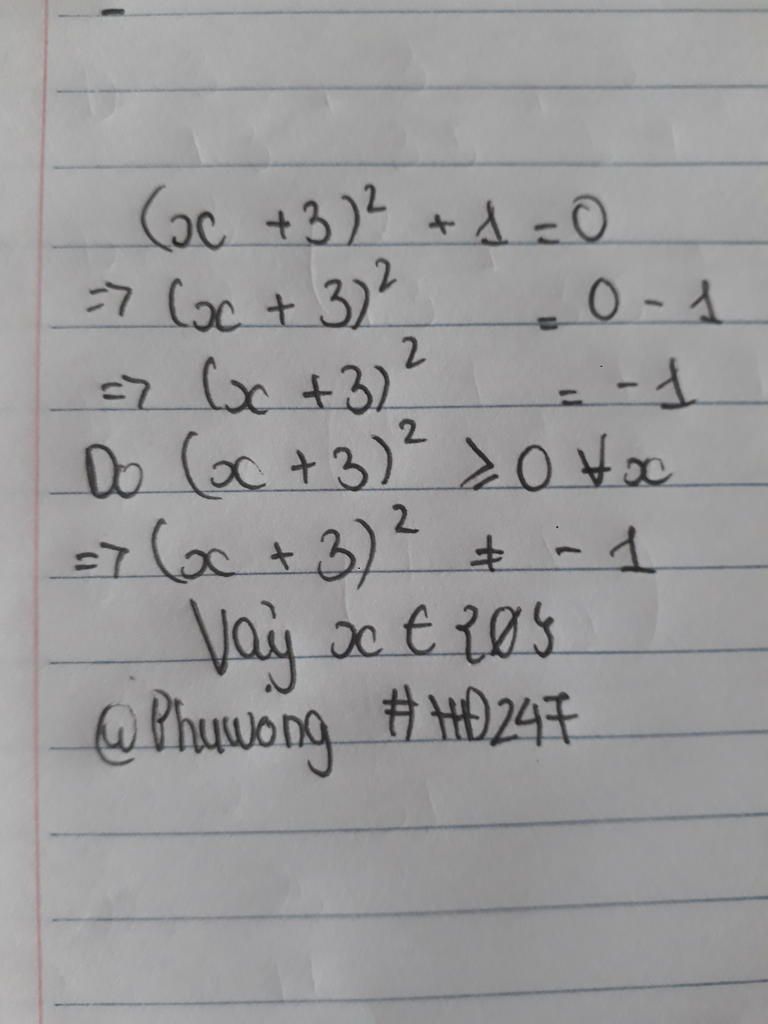 (x + 3)² + 1 = 0
=> (x + 3)² = 0 - 1
=> (x + 3)² = - 1
Do (x + 3)² ⩾ 0 ∀ x
=> (x + 3)² ≠ - 1
Vậy x ∈ {∅}
@Phuwong #HĐ247